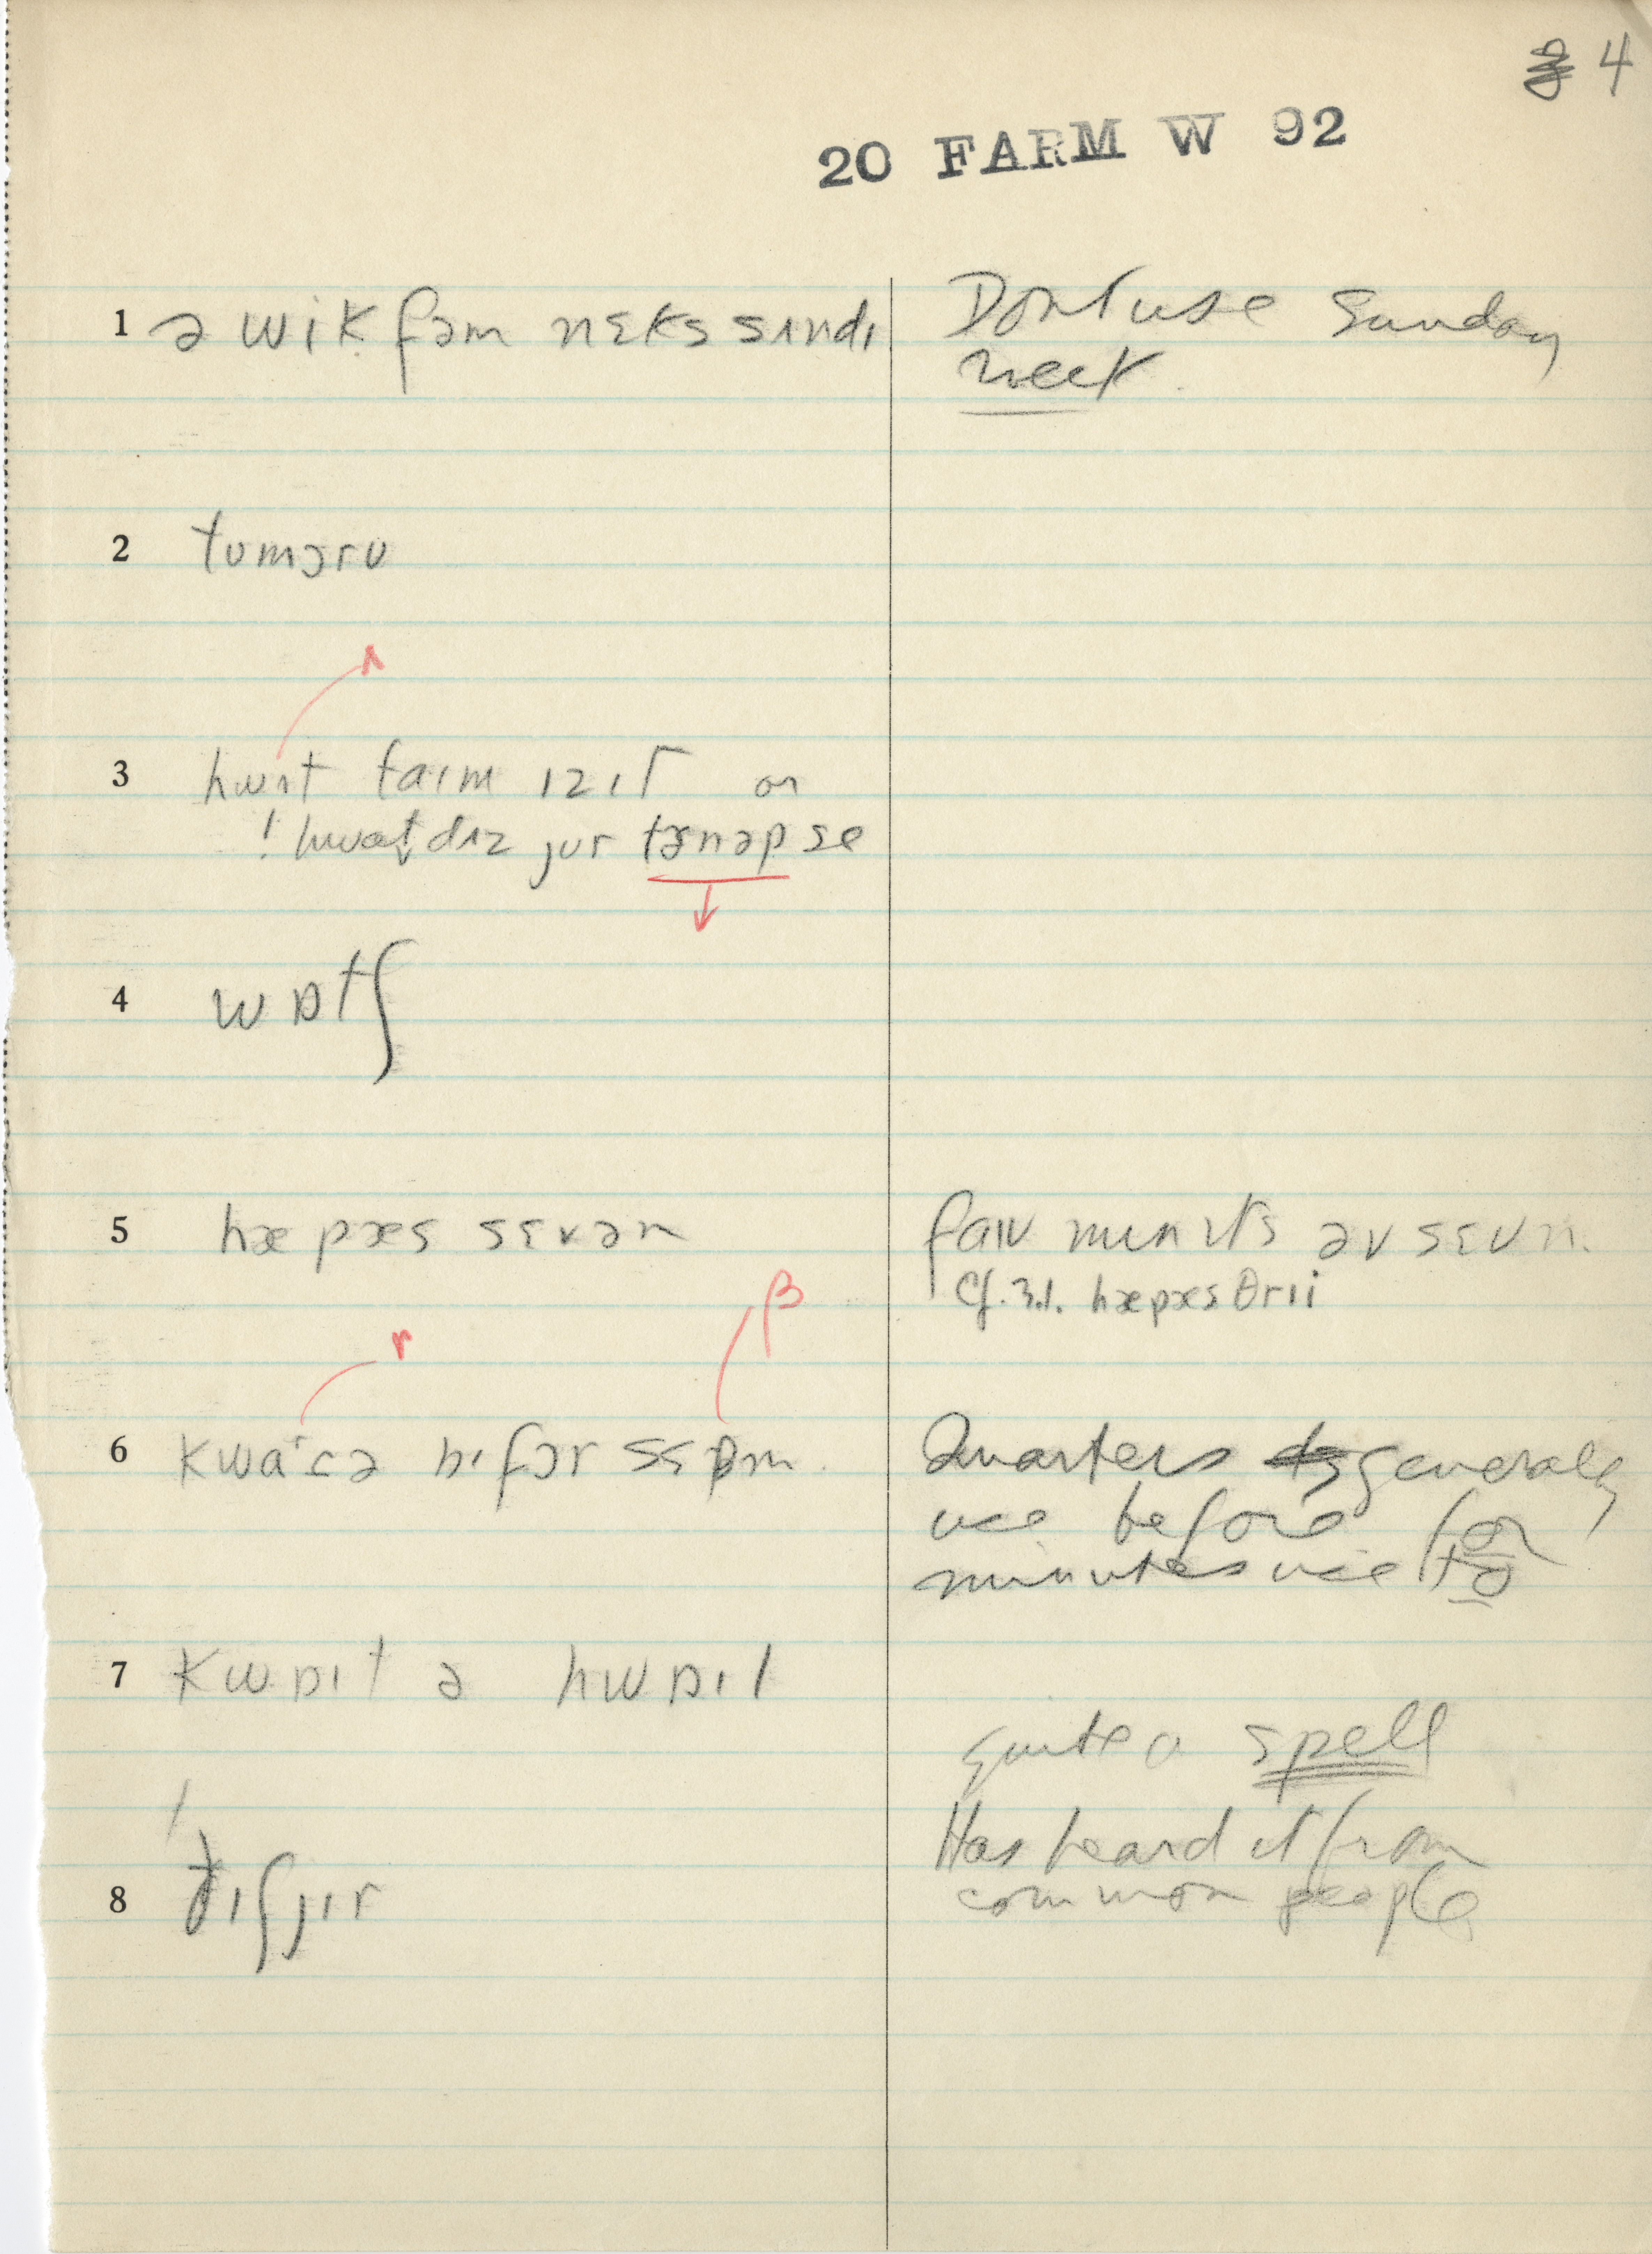 4
20 FARM W 92
1 ə wik fəm nɛks sʌndɪ Don't use Sunday
week
2 tumɔru
ʌ
3 hwʌt taɪm ɪz ɪt or
! hwat dʌz jur tɚnəp se
4 wɒtʃ
5 hæ pæs sɛvən faɪv mɪnɪts əv sɛvn.
Cf. 3.1. hæpæs θrii
r β
6 kwaɾə bɪfɔr sɛβm. Quarters generally
use before for
minutes use to
7 kwɒɪt ə hwɒɪl
quite a spell
Has heard it from
8 ðɪʃjɪr common people